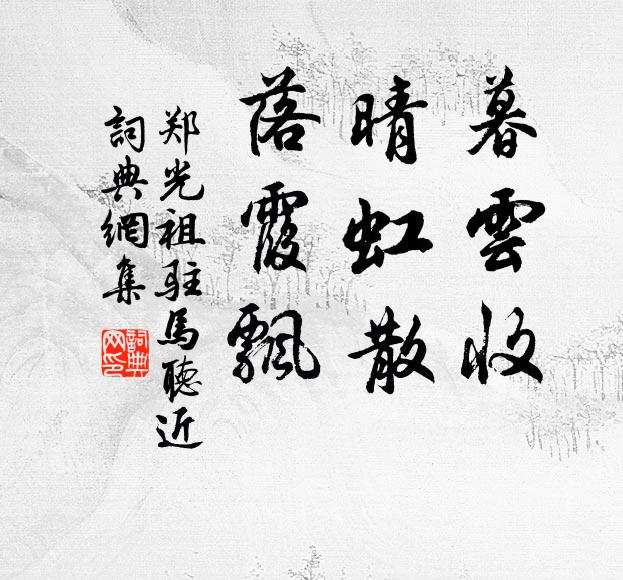 暮雲收
晴虹散
落霞飄
郑光祖駐馬聽近
詞典網集
詞典
网印